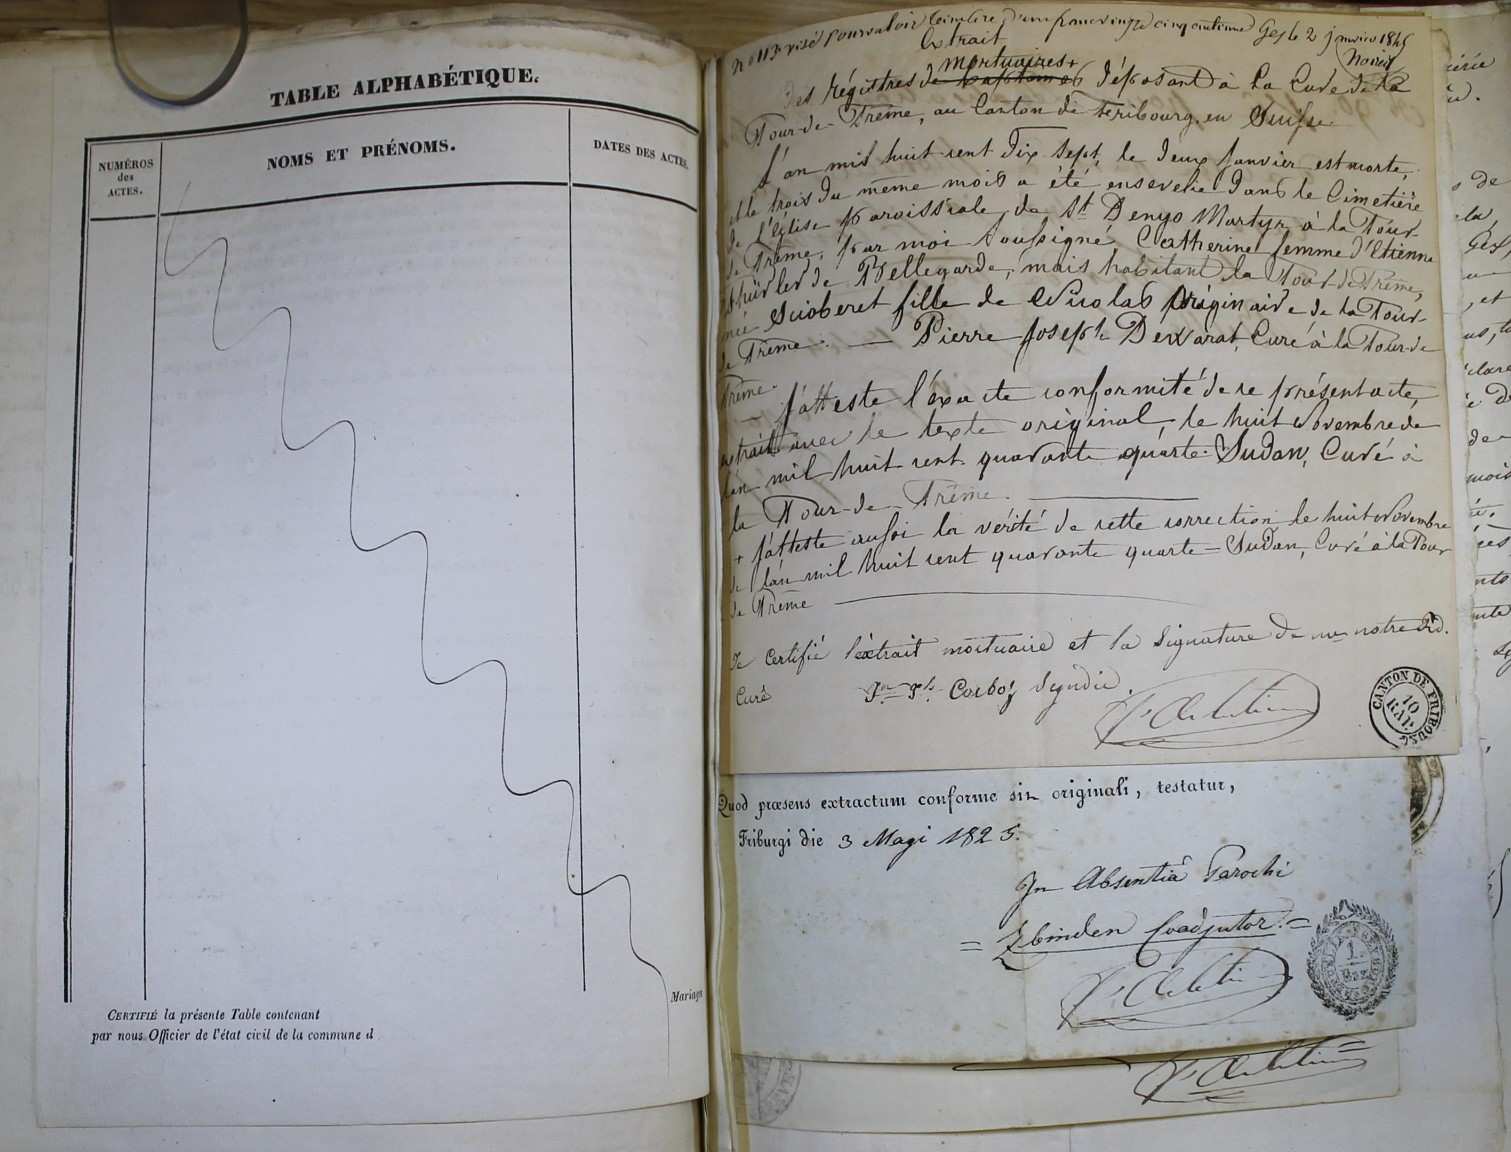 TABLE ALPHABÉTIQUE.
NUMÉROS
des
ACTES.
NOMS ET PRÉNOMS.
DATES DES ACTES.
Mariages
CERTIFIÉ la présente Table contenant
par nous Officier de l'état civil de la commune d
No 113 visé pour valoir timbre d'un franc vingt cinq centimes Gex le 2 janvier 1845
Extrait
mortuaires +
des régistres de baptêmes déposant à la Cure de la
Tour-de-Trême, au Canton de Fribourg, en Suisse
L'an mil huit cent dix sept, le deux janvier est morte,
et le trois du même mois a été ensevelie dans le Cimetière
de l'église paroissiale de St Denys Martyr à la Tour
de Trême, par moi soussigné, Catherine femme d'Etienne
de Bellegarde, mais habitant la Tour-de-Trême,
née Scioberet fille de Nicolas originaire de la Tour
de Trême. — Pierre Joseph Curé à la Tour-de
Trême.
— J'atteste l'éxacte conformité de ce présent acte,
extrait avec le texte original, le huit Novembre de
l'an mil huit cent quarante quarte. Sudan, Curé à
la Tour-de-Trême.
+ J'atteste aussi la vérité de cette correction le huit Novembre
de l'an mil huit cent quarante quarte = Sudan, Curé à la Tour
de Trême
Je certifié l'éxtrait mortuaire et la signature de notre Rd.
Curé Corboz Syndic.
CANTON DE FRIBOURG
10
RAP.
Quod præsens extractum conforme sit originali, testatur,
Friburgi die 3 Maji 1825.
In Absentiâ Parochi
= Zbinden Coadjutor. =